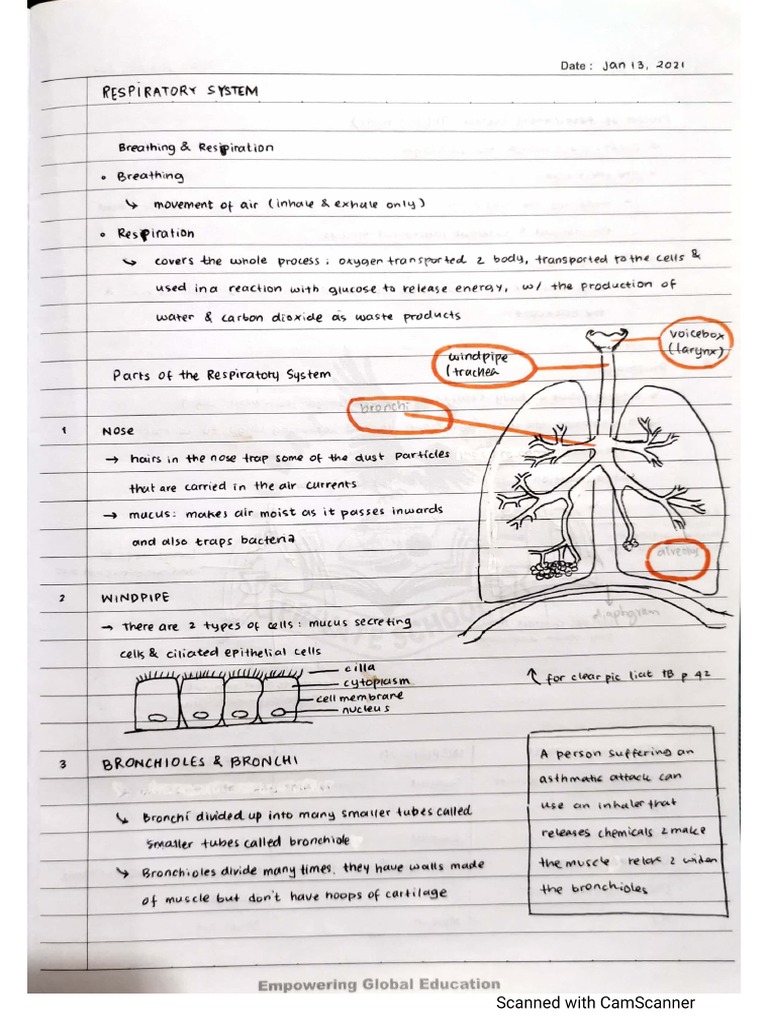 Date : Jan 13, 2021
RESPIRATORY SYSTEM
Breathing & Respiration
• Breathing
↳ movement of air (inhale & exhale only)
• Respiration
↳ covers the whole process : oxygen transported 2 body, transported to the cells &
used in a reaction with glucose to release energy, w/ the production of
water & carbon dioxide as waste products
voicebox
(larynx)
windpipe
(trachea
Parts of the Respiratory System
bronchi
1 NOSE
→ hairs in the nose trap some of the dust particles
that are carried in the air currents
→ mucus : makes air moist as it passes inwards
and also traps bacteria
alveolus
2 WINDPIPE
diaphgram
→ There are 2 types of cells : mucus secreting
cells & ciliated epithelial cells
cilla
cytoplasm
cell membrane
nucleus
↑ for clear pic liat TB p 42
3 BRONCHIOLES & BRONCHI
↳ Bronchi divided up into many smaller tubes called
smaller tubes called bronchiole
↳ Bronchioles divide many times. they have walls made
of muscle but don't have hoops of cartilage
A person suffering an
asthmatic attack can
use an inhaler that
releases chemicals 2 make
the muscle relax 2 widen
the bronchioles
Empowering Global Education
Scanned with CamScanner